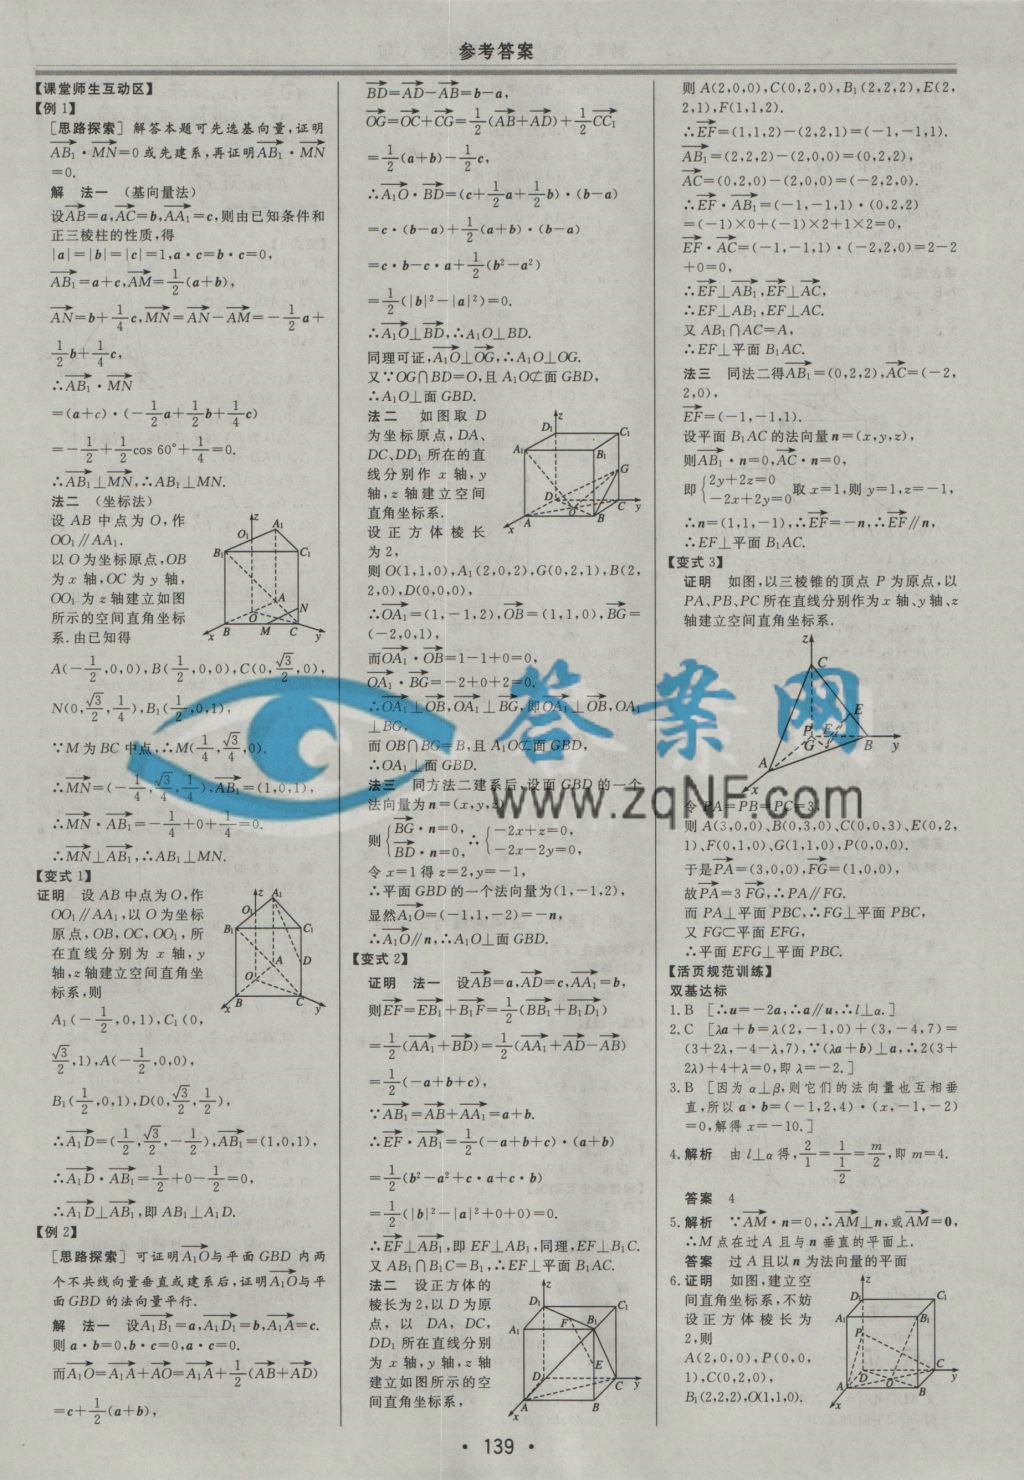 参考答案
【课堂师生互动区】
【例 1】
[思路探索] 解答本题可先选基向量,证明
AB₁·MN=0 或先建系,再证明AB₁·MN
=0.
解 法一 (基向量法)
设AB=a,AC=b,AA₁=c,则由已知条件和
正三棱柱的性质,得
|a|=|b|=|c|=1,a·c=b·c=0,
AB₁=a+c,AM=1/2(a+b),
AN=b+1/4c,MN=AN-AM=-1/2a+
1/2b+1/4c,
∴AB₁·MN
=(a+c)·(-1/2a+1/2b+1/4c)
=-1/2+1/2cos 60°+1/4=0.
∴AB₁⊥MN,∴AB₁⊥MN.
法二 (坐标法)
设 AB 中点为 O,作
OO₁∥AA₁.
以 O 为坐标原点,OB
为 x 轴,OC 为 y 轴,
OO₁ 为 z 轴建立如图
所示的空间直角坐标
系.由已知得
A(-1/2,0,0),B(1/2,0,0),C(0,√3/2,0),
N(0,√3/2,1/4),B₁(1/2,0,1),
∵M 为 BC 中点,∴M(1/4,√3/4,0).
∴MN=(-1/4,√3/4,1/4),AB₁=(1,0,1),
∴MN·AB₁=-1/4+0+1/4=0.
∴MN⊥AB₁,∴AB₁⊥MN.
【变式 1】
证明 设 AB 中点为 O,作
OO₁∥AA₁,以 O 为坐标
原点,OB,OC,OO₁,所
在直线分别为 x 轴,y
轴,z 轴建立空间直角坐
标系,则
A₁(-1/2,0,1),C₁(0,
√3/2,1),A(-1/2,0,0),
B₁(1/2,0,1),D(0,√3/2,1/2),
∴A₁D=(1/2,√3/2,-1/2),AB₁=(1,0,1),
∴A₁D·AB₁=1/2+0-1/2=0,
∴A₁D⊥AB₁,即 AB₁⊥A₁D.
【例 2】
[思路探索] 可证明A₁O与平面 GBD 内两
个不共线向量垂直或建系后,证明A₁O与平
面 GBD 的法向量平行.
解 法一 设A₁B₁=a,A₁D₁=b,A₁A=c.
则 a·b=0,b·c=0,a·c=0.
而A₁O=A₁A+AO=A₁A+1/2(AB+AD)
=c+1/2(a+b),
BD=AD-AB=b-a,
OG=OC+CG=1/2(AB+AD)+1/2CC₁
=1/2(a+b)-1/2c,
∴A₁O·BD=(c+1/2a+1/2b)·(b-a)
=c·(b-a)+1/2(a+b)·(b-a)
=c·b-c·a+1/2(b²-a²)
=1/2(|b|²-|a|²)=0.
∴A₁O⊥BD,∴A₁O⊥BD.
同理可证,A₁O⊥OG,∴A₁O⊥OG.
又∵OG∩BD=O,且 A₁O⊄面 GBD,
∴A₁O⊥面 GBD.
法二 如图取 D
为坐标原点,DA、
DC、DD₁ 所在的直
线分别作 x 轴,y
轴,z 轴建立空间
直角坐标系.
设正方体棱长
为 2,
则 O(1,1,0),A₁(2,0,2),G(0,2,1),B(2,
2,0),D(0,0,0),
∴OA₁=(1,-1,2),OB=(1,1,0),BG=
(-2,0,1),
而OA₁·OB=1-1+0=0,
OA₁·BG=-2+0+2=0.
∴OA₁⊥OB,OA₁⊥BG,即OA₁⊥OB,OA₁
⊥BG,
而 OB∩BG=B,且 A₁O⊄面 GBD,
∴OA₁⊥面 GBD.
法三 同方法二建系后,设面 GBD 的一个
法向量为 n=(x,y,z)
则{BG·n=0, BD·n=0, ∴{-2x+z=0, -2x-2y=0,
令 x=1 得 z=2,y=-1,
∴平面 GBD 的一个法向量为(1,-1,2),
显然A₁O=(-1,1,-2)=-n,
∴A₁O∥n,∴A₁O⊥面 GBD.
【变式 2】
证明 法一 设AB=a,AD=c,AA₁=b,
则EF=EB₁+B₁F=1/2(BB₁+B₁D₁)
=1/2(AA₁+BD)=1/2(AA₁+AD-AB)
=1/2(-a+b+c),
∵AB₁=AB+AA₁=a+b.
∴EF·AB₁=1/2(-a+b+c)·(a+b)
=1/2(b²-a²+c·a+c·b)
=1/2(|b|²-|a|²+0+0)=0.
∴EF⊥AB₁,即 EF⊥AB₁,同理,EF⊥B₁C.
又 AB₁∩B₁C=B₁,∴EF⊥平面 B₁AC.
法二 设正方体的
棱长为 2,以 D 为原
点,以 DA,DC,
DD₁ 所在直线分别
为 x 轴,y 轴,z 轴
建立如图所示的空
间直角坐标系,
则 A(2,0,0),C(0,2,0),B₁(2,2,2),E(2,
2,1),F(1,1,2).
∴EF=(1,1,2)-(2,2,1)=(-1,-1,1).
AB₁=(2,2,2)-(2,0,0)=(0,2,2),
AC=(0,2,0)-(2,0,0)=(-2,2,0).
∴EF·AB₁=(-1,-1,1)·(0,2,2)
=(-1)×0+(-1)×2+1×2=0,
EF·AC=(-1,-1,1)·(-2,2,0)=2-2
+0=0,
∴EF⊥AB₁,EF⊥AC,
∴EF⊥AB₁,EF⊥AC.
又 AB₁∩AC=A,
∴EF⊥平面 B₁AC.
法三 同法二得AB₁=(0,2,2),AC=(-2,
2,0),
EF=(-1,-1,1).
设平面 B₁AC 的法向量 n=(x,y,z),
则AB₁·n=0,AC·n=0,
即{2y+2z=0 -2x+2y=0 取 x=1,则 y=1,z=-1,
∴n=(1,1,-1),∴EF=-n,∴EF∥n,
∴EF⊥平面 B₁AC.
【变式 3】
证明 如图,以三棱锥的顶点 P 为原点,以
PA、PB、PC 所在直线分别作为 x 轴、y 轴、z
轴建立空间直角坐标系.
令 PA=PB=PC=3,
则 A(3,0,0)、B(0,3,0)、C(0,0,3)、E(0,2,
1)、F(0,1,0)、G(1,1,0),P(0,0,0).
于是PA=(3,0,0),FG=(1,0,0),
故PA=3FG,∴PA∥FG.
而 PA⊥平面 PBC,∴FG⊥平面 PBC,
又 FG⊂平面 EFG,
∴平面 EFG⊥平面 PBC.
【活页规范训练】
双基达标
1.B [∵u=-2a,∴a∥u,∴l⊥α.]
2.C [λa+b=λ(2,-1,0)+(3,-4,7)=
(3+2λ,-4-λ,7),∵(λa+b)⊥a,∴2(3+
2λ)+4+λ=0,即 λ=-2.]
3.B [因为 α⊥β,则它们的法向量也互相垂
直,所以 a·b=(-1,2,4)·(x,-1,-2)
=0,解得 x=-10.]
4.解析 由 l⊥α 得,2/1=1/(1/2)=m/2,即 m=4.
答案 4
5.解析 ∵AM·n=0,∴AM⊥n,或AM=0,
∴M 点在过 A 且与 n 垂直的平面上.
答案 过 A 且以 n 为法向量的平面
6.证明 如图,建立空
间直角坐标系,不妨
设正方体棱长为
2,则
A(2,0,0),P(0,0,
1),C(0,2,0),
B₁(2,2,2),O(1,1,0).
答案网
www.zqNF.com
·139·